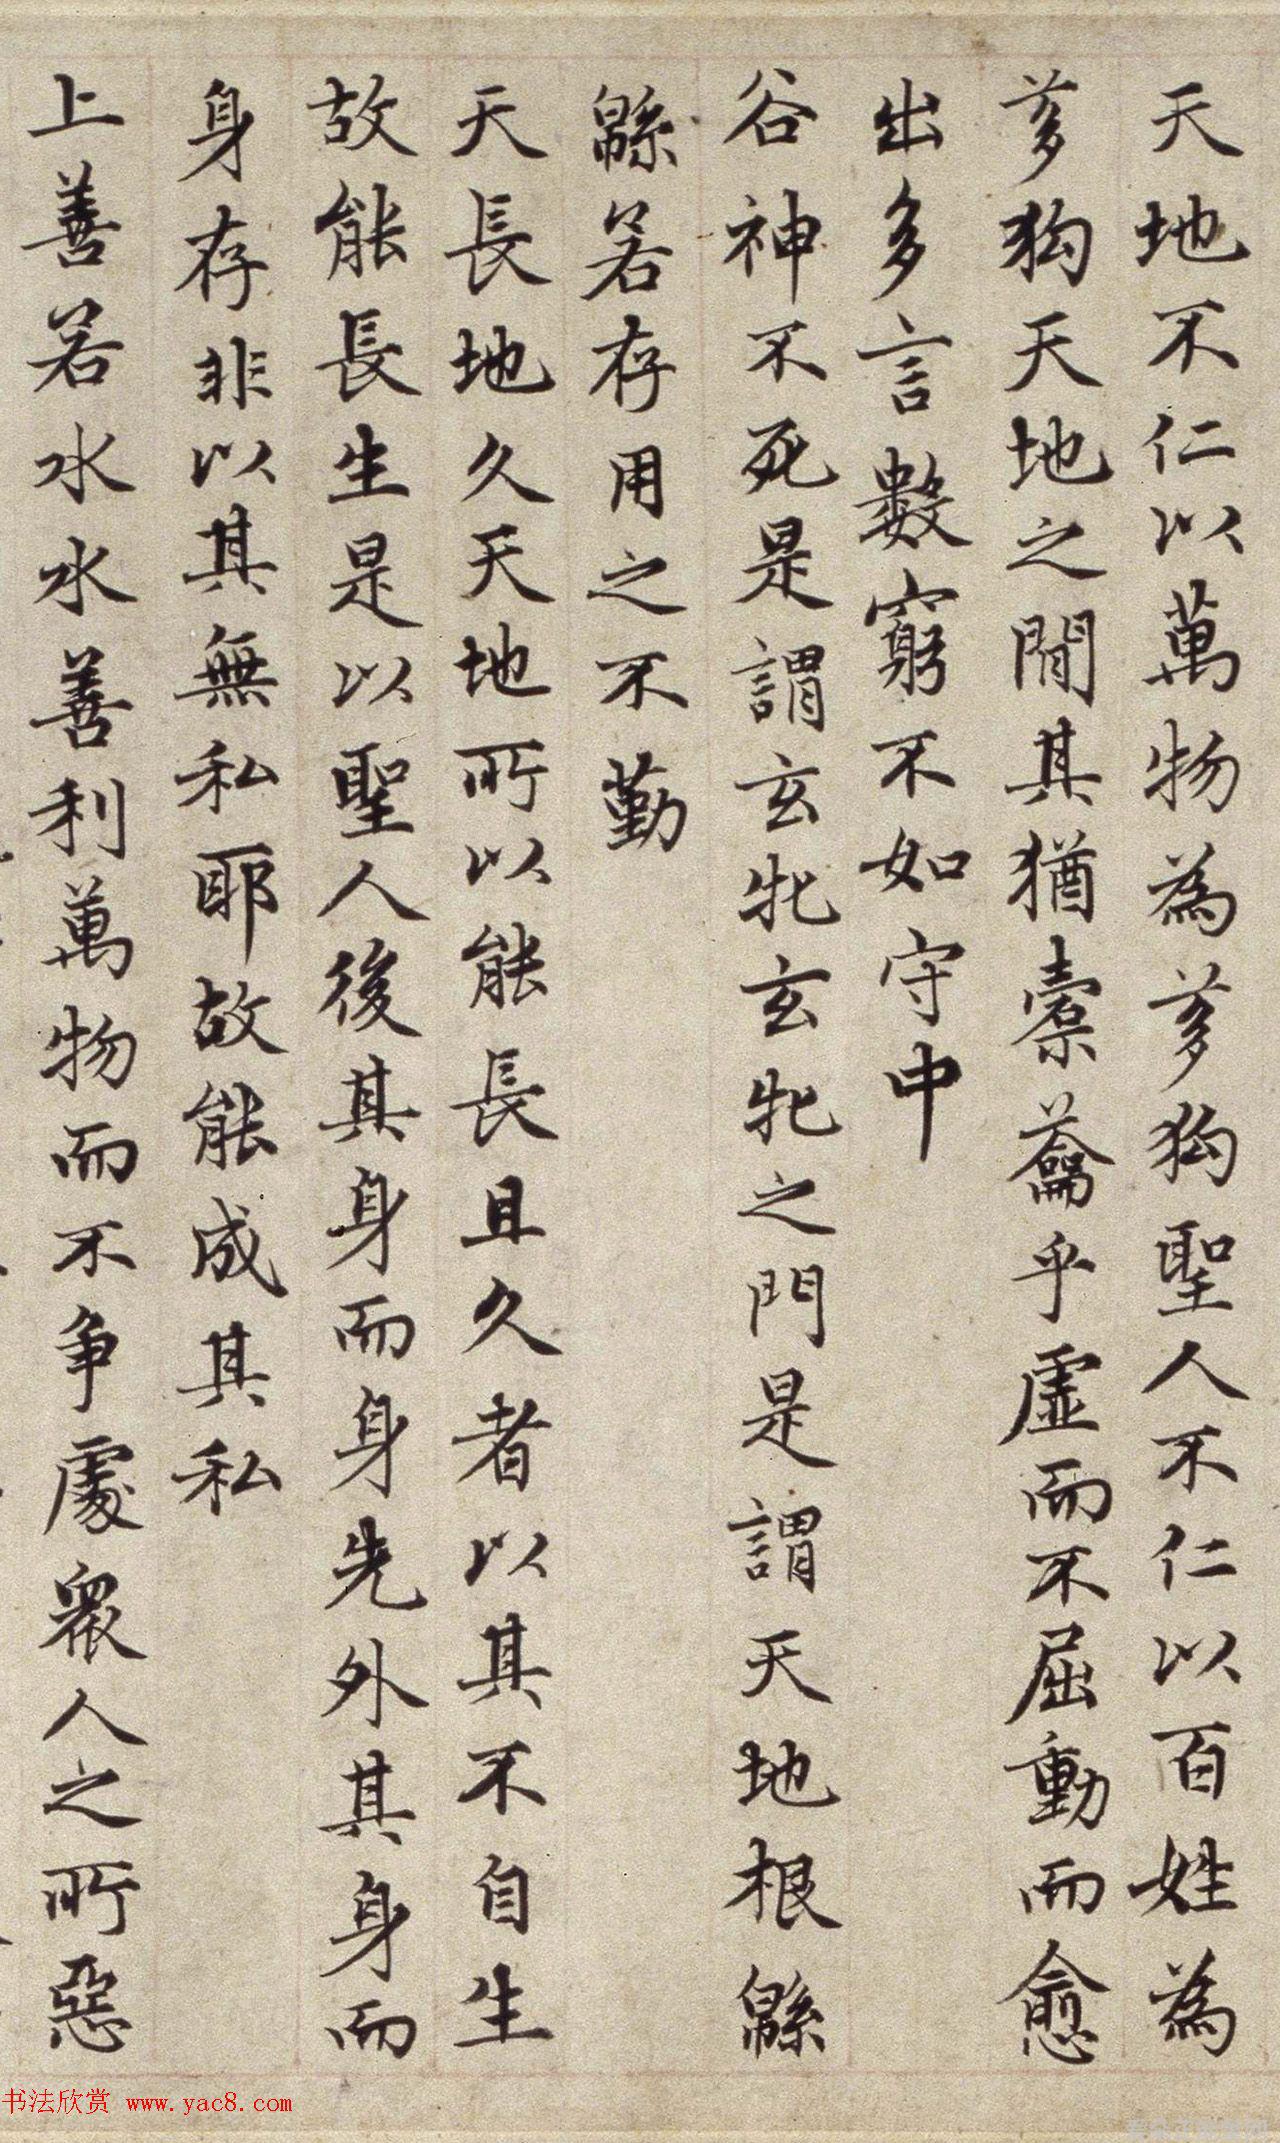 天地不仁以萬物為芻狗聖人不仁以百姓為
芻狗天地之間其猶橐籥乎虛而不屈動而愈
出多言數窮不如守中
谷神不死是謂玄牝玄牝之門是謂天地根緜
緜若存用之不勤
天長地久天地所以能長且久者以其不自生
故能長生是以聖人後其身而身先外其身而
身存非以其無私耶故能成其私
上善若水水善利萬物而不争處衆人之所惡
书法欣赏 www.yac8.com